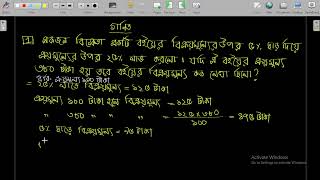 গণিত
১) একজন বিক্রেতা একটি বইয়ের বিক্রয়মূল্যের উপর ৫% ছাড় দিয়ে
ক্রয়মূল্যের উপর ২৫% লাভ করলো। যদি ঐ বইয়ের ক্রয়মূল্য
৩৮০ টাকা হয় তবে বইয়ের বিক্রয়মূল্য কত লেখা ছিলো?
ক্রয়মূল্য ১০০ টাকা
২৫% লাভে বিক্রয়মূল্য = ১২৫ টাকা
ক্রয়মূল্য ১০০ টাকা হলে বিক্রয়মূল্য = ১২৫ টাকা
" ৩৮০ " " " = ১২৫×৩৮০ / ১০০ = ৪৭৫ টাকা
৫% ছাড়ে বিক্রয়মূল্য = ৯৫ টাকা
Activate Windows
Go to Settings to activate Windows.